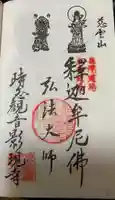 慈雲山
釋迦牟尼佛
弘法大師
時志観音影現寺